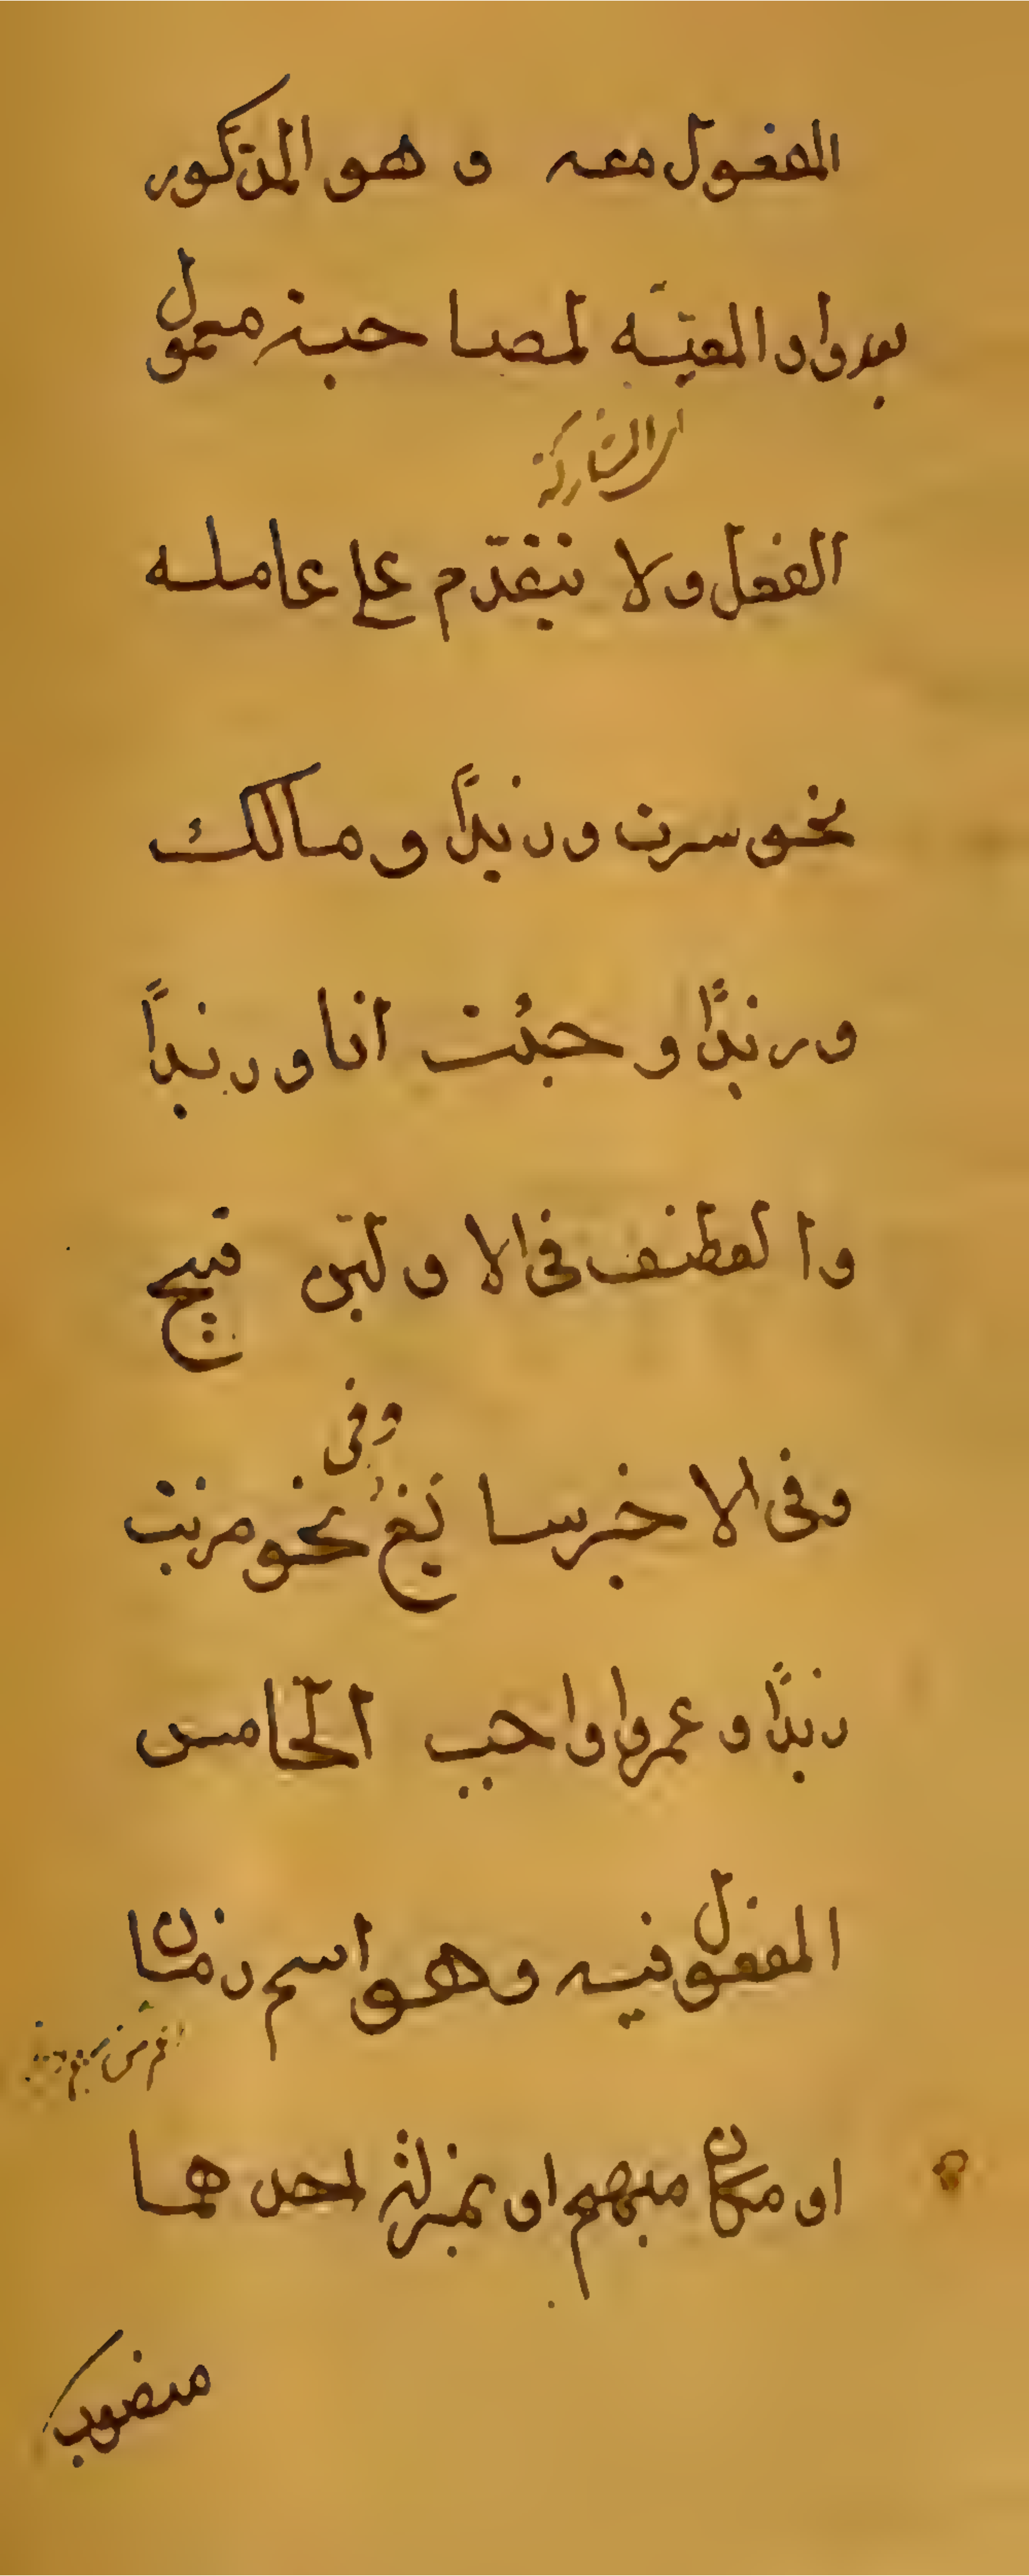 المفعول معه و هو المذكور
بعد واو المعيّة لمصاحبة معمول
اى المشاركة
الفعل ولا يتقدّم على عامله
نحو سرت وزيدًا و مالك
و زيدًا و جئت انا و زيدًا
والعطف فى الاولين قبيح
وفى
وفى الاخير سايغ نحو ضربت
زيدًا و عمروا واجب الخامس
المفعول فيه وهو اسم زمان
او مكان مبهم او بمنزلة احدهما
منصوب